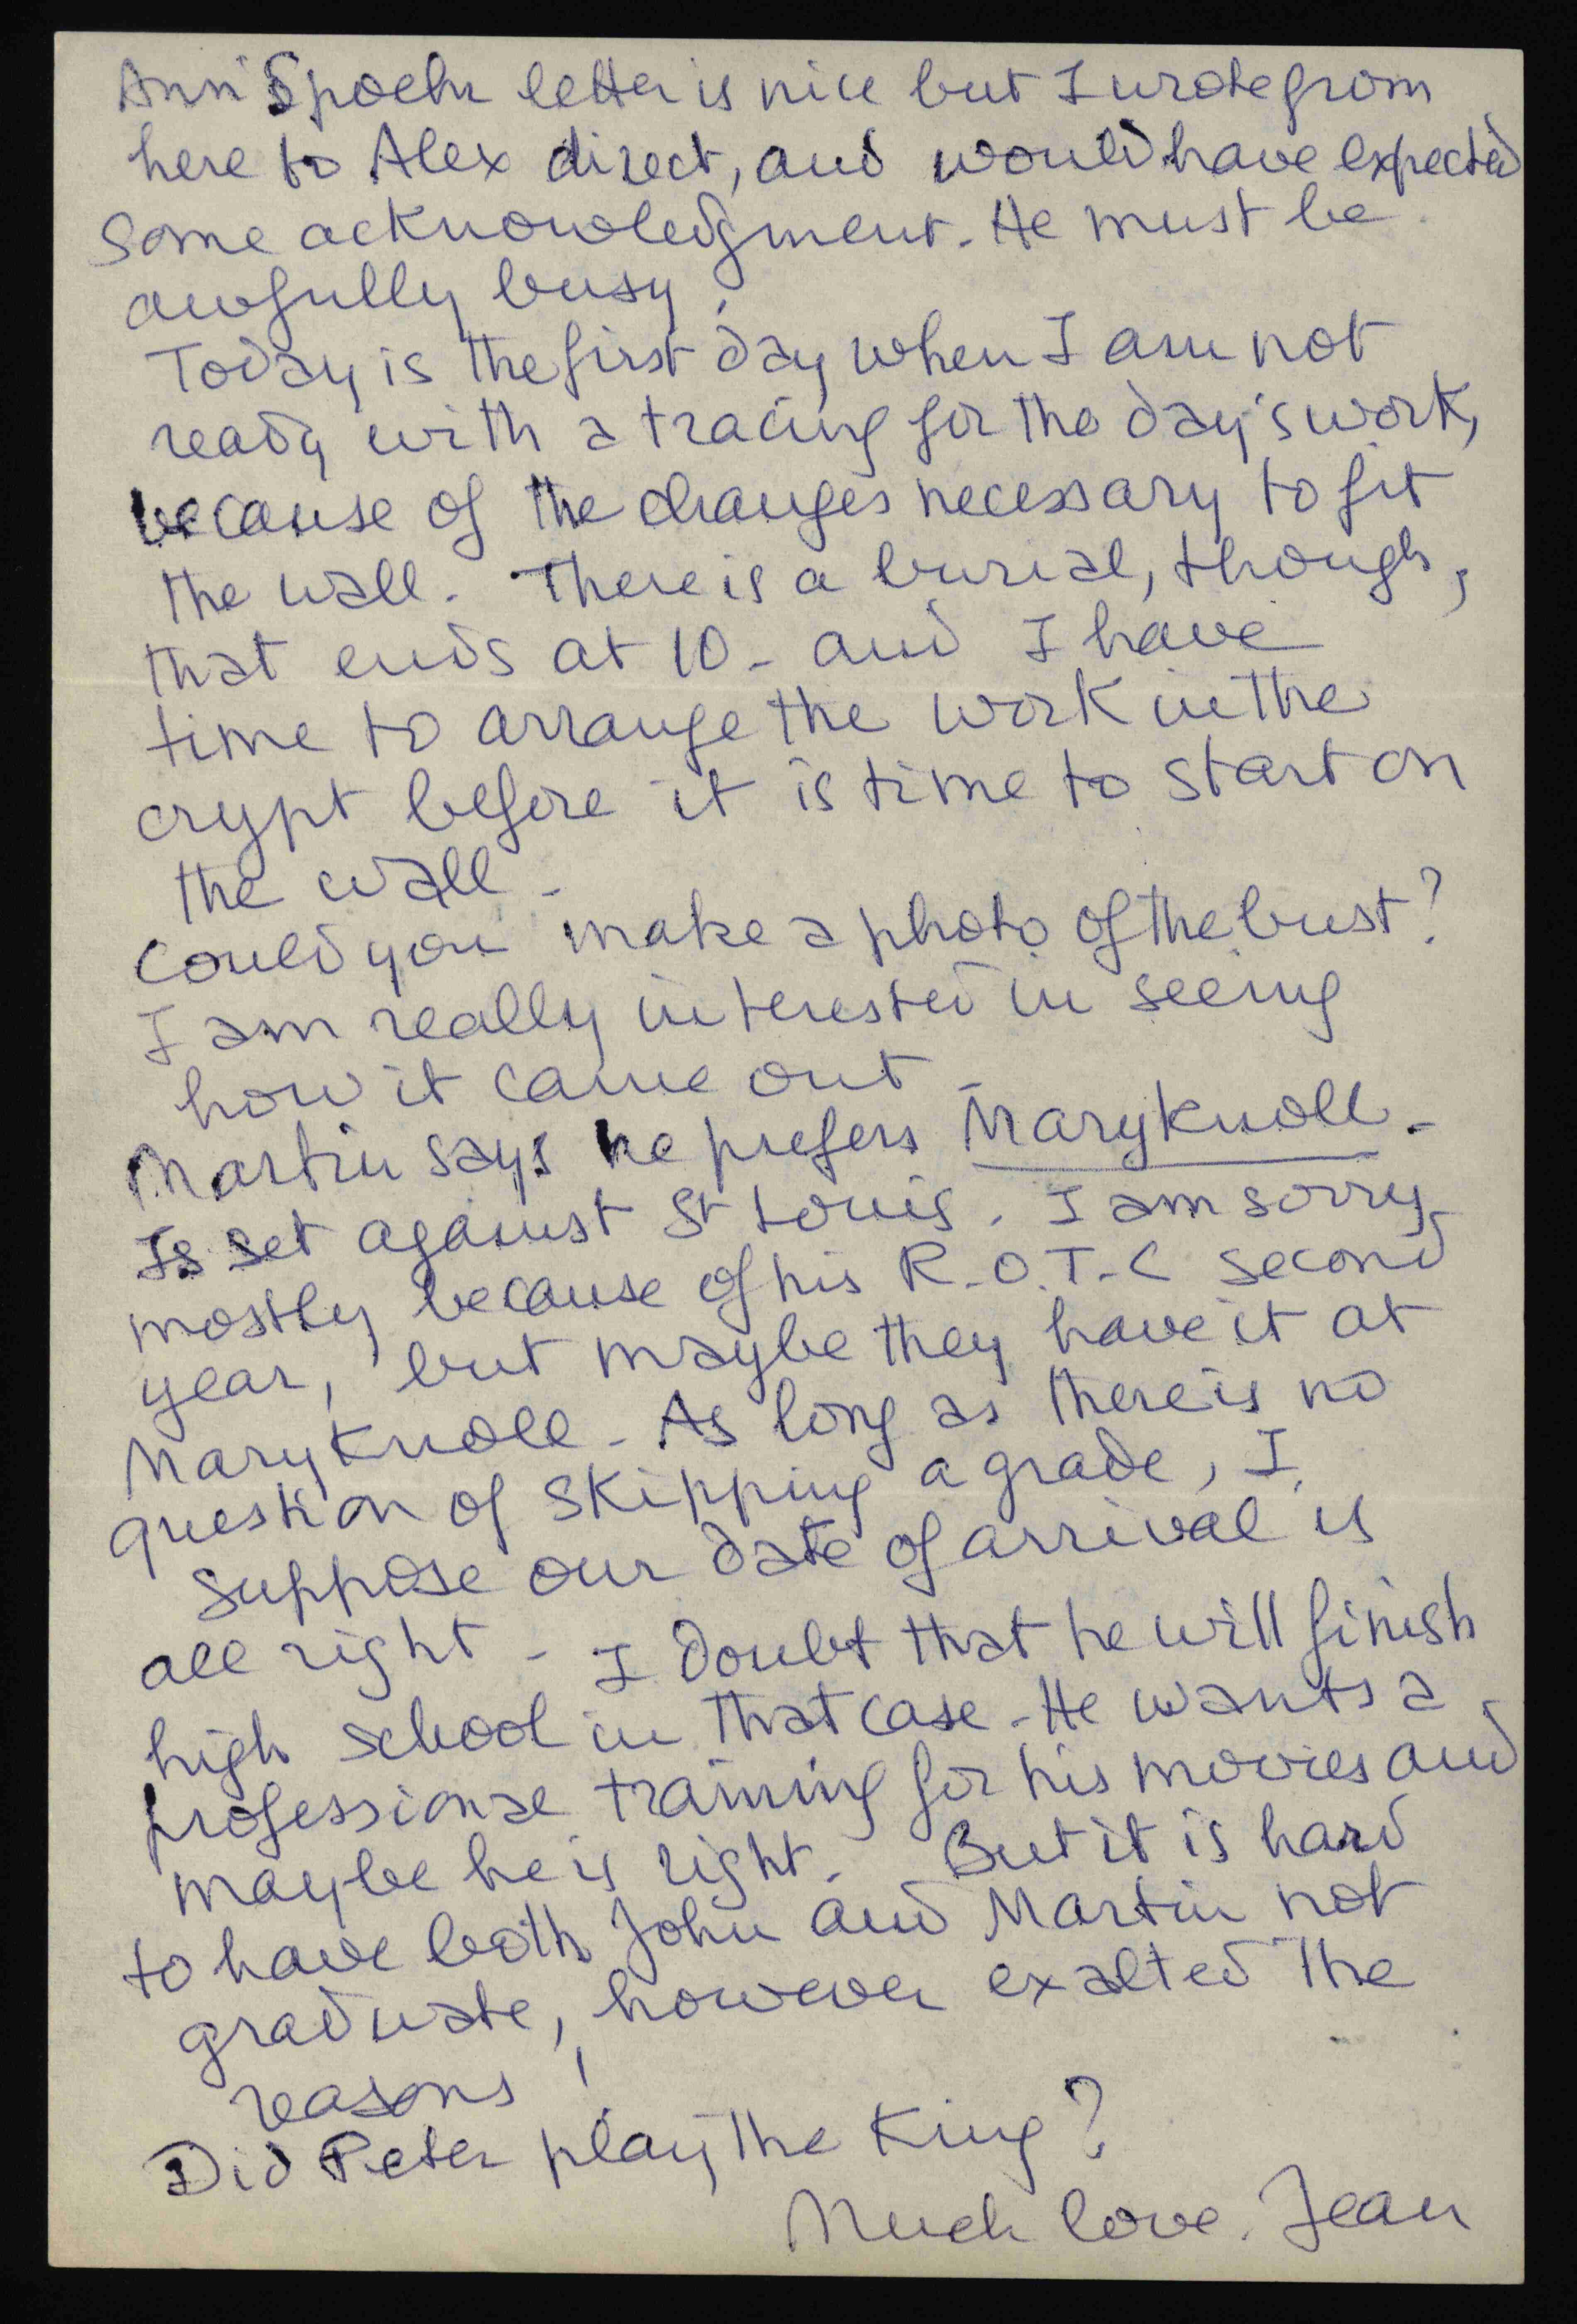 Ann' Spoehr letter is nice but I wrote from
here to Alex direct, and would have expected
some acknowledgment. He must be
awfully busy.
Today is the first day when I am not
ready with a tracing for the day's work,
because of the changes necessary to fit
the wall. There is a burial, though,
that ends at 10 - and I have
time to arrange the work in the
crypt before it is time to start on
the wall -
Could you make a photo of the bust?
I am really interested in seeing
how it came out -
Martin says he prefers Maryknoll -
Is set against St Louis. I am sorry
mostly because of his R.O.T.C second
year, but maybe they have it at
Maryknoll - As long as there is no
question of skipping a grade, I
suppose our date of arrival is
all right - I doubt that he will finish
high school in that case - He wants a
professional training for his movies and
maybe he is right. But it is hard
to have both John and Martin not
graduate, however exalted the
reasons!
Did Peter play the King?
Much love. Jean